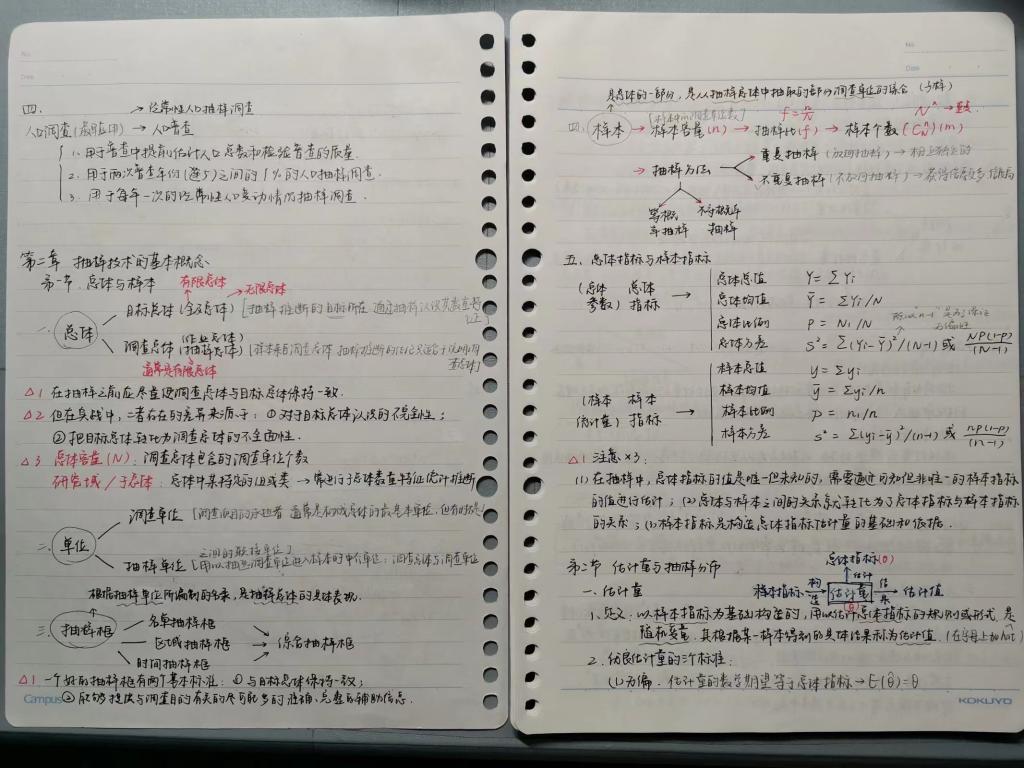 No.
Date
四. → 经常性人口抽样调查
人口调查(应用) → 人口普查
1. 用于普查中提前估计人口总数和检验普查的质量.
2. 用于两次普查年份(逢5)之间的1%的人口抽样调查.
3. 用于每年一次的经常性人口变动情况抽样调查.
第二章 抽样技术的基本概念
第一节. 总体与样本
有限总体
无限总体
目标总体(全及总体) [抽样推断的目标所在 通过抽样认识其数量特征]
一. 总体
(作业总体)
调查总体(抽样总体) [样本来自调查总体 抽样推断的结论只适合于说明调查总体]
通常是有限总体
△1 在抽样之前应尽量使调查总体与目标总体保持一致.
△2 但在实践中,二者存在的差异来源于:①对目标总体认识的不全面性;
②把目标总体转化为调查总体的不全面性.
△3 总体容量(N):调查总体包含的调查单位个数
研究域/子总体:总体中某特定的组或类 → 需进行子总体数量特征估计推断
调查单位 [调查项目的承担者 通常是构成总体的最基本单位,但有时
二. 单位
之间的联接单位]
抽样单位 [用以抽选调查单位进入样本的中介单位:调查总体与调查单位
根据抽样单位所编制的名录,是抽样总体的具体表现.
三. 抽样框
名单抽样框
区域抽样框 → 综合抽样框
时间抽样框
△1 一个好的抽样框有两个基本标准:①与目标总体保持一致;
②能够提供与调查目的有关的尽可能多的准确、完整的辅助信息.
Campus
No.
Date
是总体的一部分,是从抽样总体中抽取的部分调查单位的综合(子样)
[样本中调查单位数] f=n/N Nⁿ → 重复.
四. 样本 → 样本容量(n) → 抽样比(f) → 样本个数(C_N^n)(m)
→ 抽样方法
重复抽样(放回抽样) → 相互独立的
不重复抽样(不放回抽样) → 获得信息较多
等概率抽样 不等概率抽样
五. 总体指标与样本指标
(总体参数) 总体指标 →
总体总值 Y=ΣYi
总体均值 Ȳ=ΣYi/N
总体比例 P=N₁/N
总体方差 S²=Σ(Yi-Ȳ)²/(N-1) 或 NP(1-P)/(N-1)
所以n-1是为了保证无偏性
(样本估计量) 样本指标 →
样本总值 y=Σyi
样本均值 ȳ=Σyi/n
样本比例 p=n₁/n
样本方差 s²=Σ(yi-ȳ)²/(n-1) 或 np(1-p)/(n-1)
△1 注意×3:
(1) 在抽样中,总体指标的值是唯一但未知的,需要通过可知但非唯一的样本指标
的值进行估计;(2)总体与样本之间的关系转化为了总体指标与样本指标
的关系;(3)样本指标是构造总体指标估计量的基础和依据.
第二节 估计量与抽样分布
总体指标(θ)
↑估计
样本指标 构造→ 估计量 结果→ 估计值
(θ̂)
一. 估计量
1. 定义:以样本指标为基础构造的,用以估计总体指标的规则或形式,是
随机变量,其根据某一样本得到的具体结果称为估计值.(在字母上加hat)
2. 优良估计量的三个标准:
(1) 无偏. 估计量的数学期望等于总体指标 → E(θ̂)=θ
KOKUYO